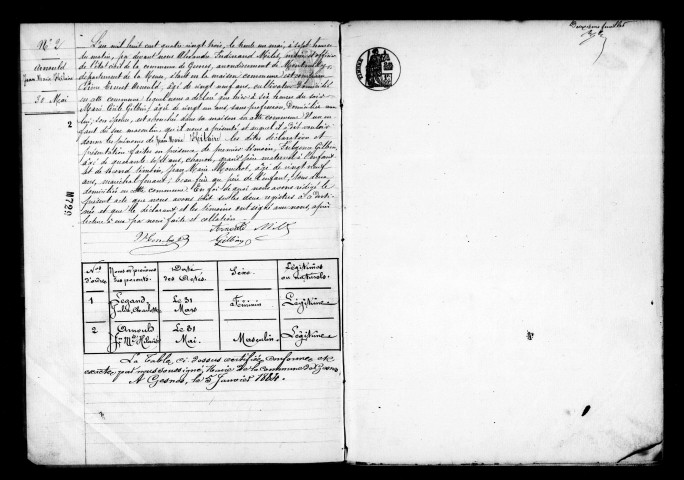 N° 2
Arnould
Jean Marie Hilaire
31 Mai
2
L'an mil huit cent quatre vingt trois, le trente un mai, à sept heures
du matin, par devant nous Alexandre Ferdinand Miles, maire et officier
de l'état civil de la commune de Gesnes, arrondissement de Montmédy,
département de la Meuse, étant en la maison commune est comparu
Pierre Ernest Arnould, âgé de vingt neuf ans, cultivateur domicilié
en cette commune; lequel nous a déclaré que hier à six heures du soir
Marie Gillon, âgée de vingt un ans, sans profession, domiciliée avec
lui, son épouse, est accouchée dans sa maison en cette commune d'un en-
fant du sexe masculin, qu'il nous a présenté et auquel il a dit vouloir
donner les prénoms de Jean Marie Hilaire. Les dites déclaration et
présentation faites en présence de premier témoin, Gillon,
âgé de quarante sept ans, grand père maternel à l'enfant
et de second témoin, Jean Marie, âgé de vingt neuf
ans, maréchal ferrant, beau frère au père de l'enfant, tous deux
domiciliés en cette commune. En foi de quoi nous avons rédigé le
présent acte que nous avons écrit sur les deux registres à ce desti-
nés et que le déclarant et les témoins ont signé avec nous, après
lecture à eux par nous faite et collation.
Arnould
Gillon
Nos d'ordre
Noms et prénoms des parents.
Date des Actes.
Sexe.
Légitimes ou naturels.
1
Legand
Le 31 Mars
Féminin
Légitime
2
Arnould
Jn Mie Hilaire
Le 31 Mai.
Masculin.
Légitime
La Table ci-dessus certifiée conforme et
exacte, par nous soussigné, Maire de la commune de Gesnes.
A Gesnes, le 5 Janvier 1884.
Deuxième feuillet